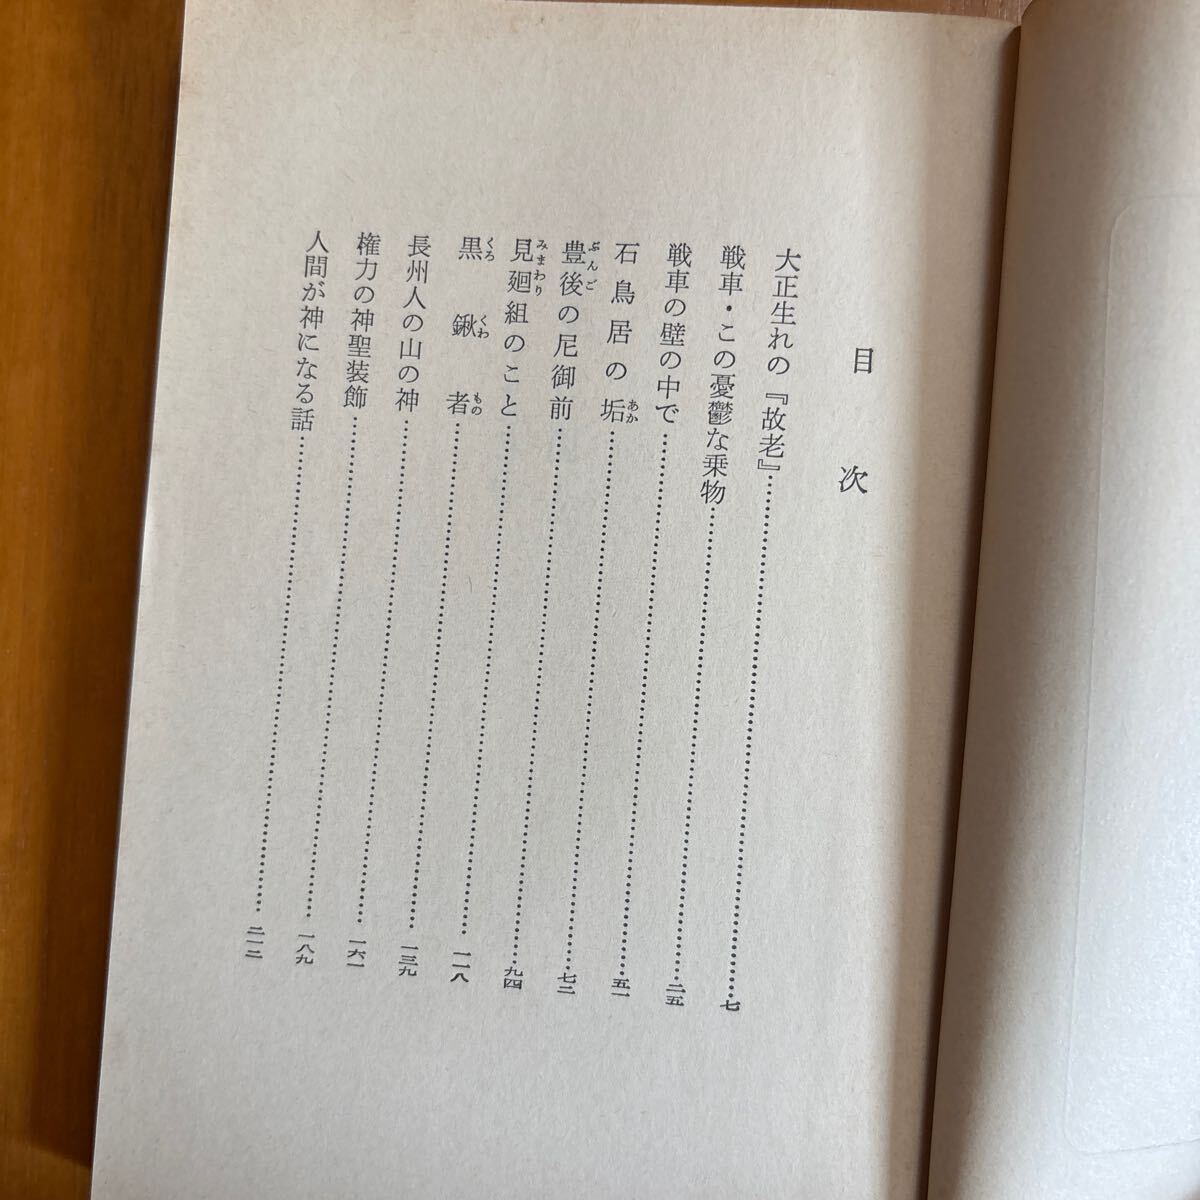 目次
大正生れの『故老』……七
戦車・この憂鬱な乗物……二五
戦車の壁の中で……五一
あか
石鳥居の垢……七二
ぶんご
豊後の尼御前……九四
みまわり
見廻組のこと……一一八
くろくわもの
黒鍬者……一三九
長州人の山の神……一六一
権力の神聖装飾……一八九
人間が神になる話……二一二